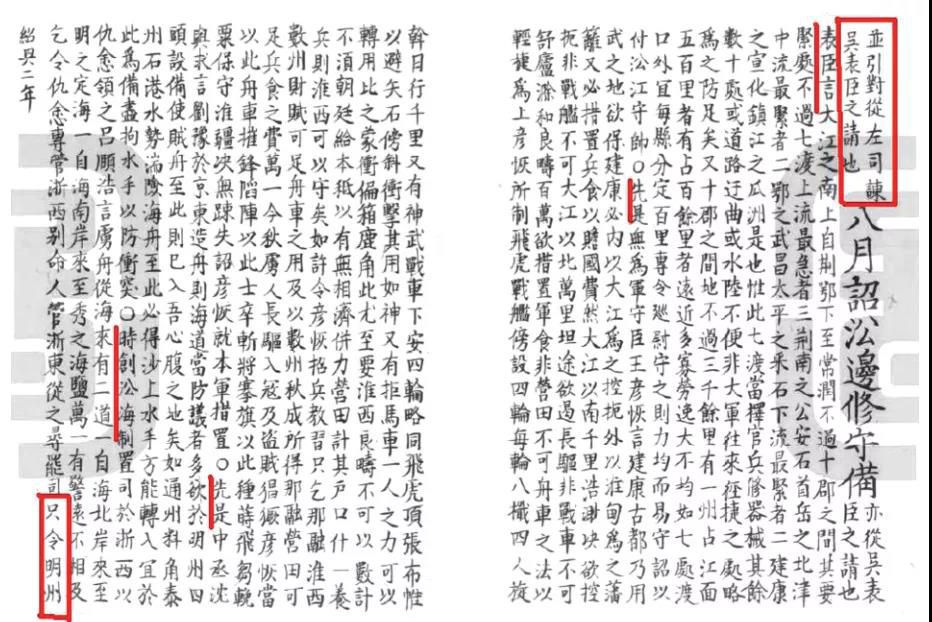 並引對從左司諫
吳表臣之請也
八月詔㳂邊修守備
亦從吳表
臣之請也
表臣言大江之南上自荆鄂下至常潤不過十郡之間其要
緊處不過七渡上流最急者三荆南之公安石首岳之北津
中流最緊者二鄂之武昌太平之采石下流最緊者二建康
之宣化鎮江之瓜洲是也惟此七渡當擇官兵修器械其餘
數十處或道路迂曲或水陸不便非大軍往來徑捷之處略
為之防足矣又十郡之間地不過三千餘里有一州占江面
五百里者有占百餘里者遠近多寡勞逸大不均如七處渡
口外宜每縣分定百里專令廵尉守之則力均而易守詔以
付㳂江守帥〇先是無為軍守臣王彦恢言建康古都乃用
武之地欲得建康必内以大江為之控扼外以淮甸為之藩
籬又必措置兵食以贍國費然大江以南千里浩渺决欲控
扼非戰艦不可大江以北萬里坦途欲遏長驅非戰車不可
舒廬滁和良疇百萬欲措置軍食非營田不可舟車之法以
輕旋為上彦恢所制飛虎戰艦傍設四輪每輪八檝四人旋
斡日行千里又有神武戰車下安四輪略同飛虎頂張布帷
以避矢石傍斜衝擊其用如神又有拒馬車一人之力可以
轉用比之蒙衝偏箱鹿角此尤至要淮西良疇不可以數計
不湏朝廷給本秪以有無相濟併力營田計其戸口什一養
兵則淮西可以守矣如許令彦恢招兵教習只乞那融淮西
數州財賦可足舟車之用及以數州秋成所得那融營田可
足兵食之費萬一秋虜人長驅入冦及盜賊猖獗彦恢當
以此舟車摧鋒陷陣以此士卒斬將搴旗以此種蒔飛芻輓
粟保守淮疆决無踈失詔彦恢就本軍措置〇先是中丞沈
與求言劉豫於京東造舟則海道當防議者多欲於明州四
頭設備使賊舟至此則已入吾心腹之地矣如通州料角泰
州石港水勢湍險海舟至此必得沙上水手方能轉入宜於
此為備盡拘水手以防衝突〇時創㳂海制置司於浙西以
仇悆領之呂頤浩言虜舟從海來有二道一自海北岸來至
明之定海一自海南岸來至秀之海鹽萬一有警遠不相及
乞令仇悆專管浙西别命人管浙東從之尋罷司只令明州
紹興二年